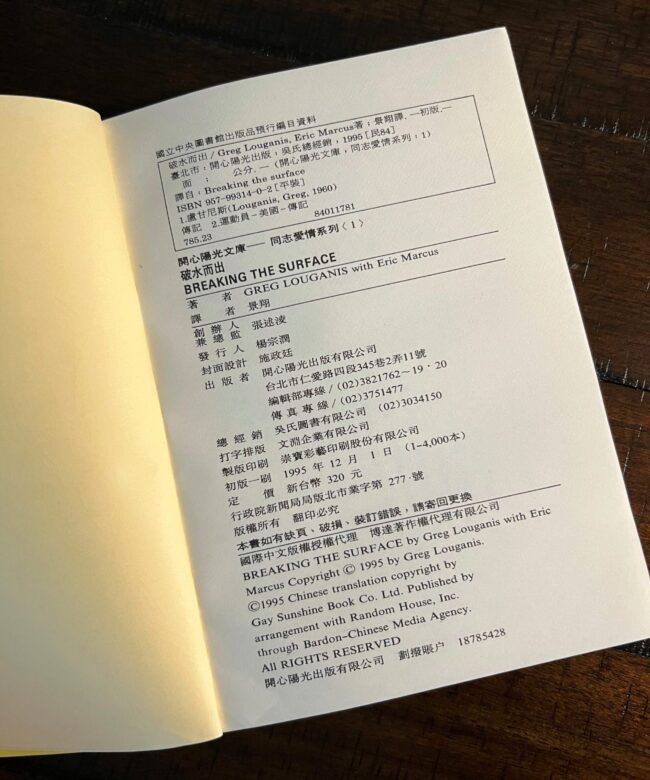 國立中央圖書館出版品預行編目資料
破水而出/Greg Louganis, Eric Marcus著;景翔譯.—初版.—
臺北市:開心陽光出版;吳氏總經銷,1995[民84]
面; 公分.—(開心陽光文庫,同志愛情系列:1)
譯自:Breaking the surface
ISBN 957-99314-0-2[平裝]
1.盧甘尼斯(Louganis, Greg, 1960)
傳記 2.運動員-美國-傳記
785.23 84011781
開心陽光文庫——同志愛情系列〈1〉
破水而出
BREAKING THE SURFACE
著者 GREG LOUGANIS with Eric Marcus
譯者 景翔
創辦人兼總監 張述淩
發行人 楊宗潤
封面設計 施政廷
出版者 開心陽光出版有限公司
台北市仁愛路四段345巷2弄11號
編輯部專線/(02)3821762~19·20
傳真專線/(02)3751477
總經銷 吳氏圖書有限公司 (02)3034150
打字排版 文淵企業有限公司
製版印刷 崇寶彩藝印刷股份有限公司
初版一刷 1995年12月1日 (1-4,000本)
定價 新台幣320元
行政院新聞局局版北市業字第277·號
版權所有 翻印必究
本書如有缺頁、破損、裝訂錯誤,請寄回更換
國際中文版權授權代理 博達著作權代理有限公司
BREAKING THE SURFACE by Greg Louganis with Eric
Marcus Copyright © 1995 by Greg Louganis.
©1995 Chinese translation copyright by
Gay Sunshine Book Co. Ltd. Published by
arrangement with Random House, Inc.
through Bardon-Chinese Media Agency.
All RIGHTS RESERVED
開心陽光出版有限公司 劃撥賬户 18785428